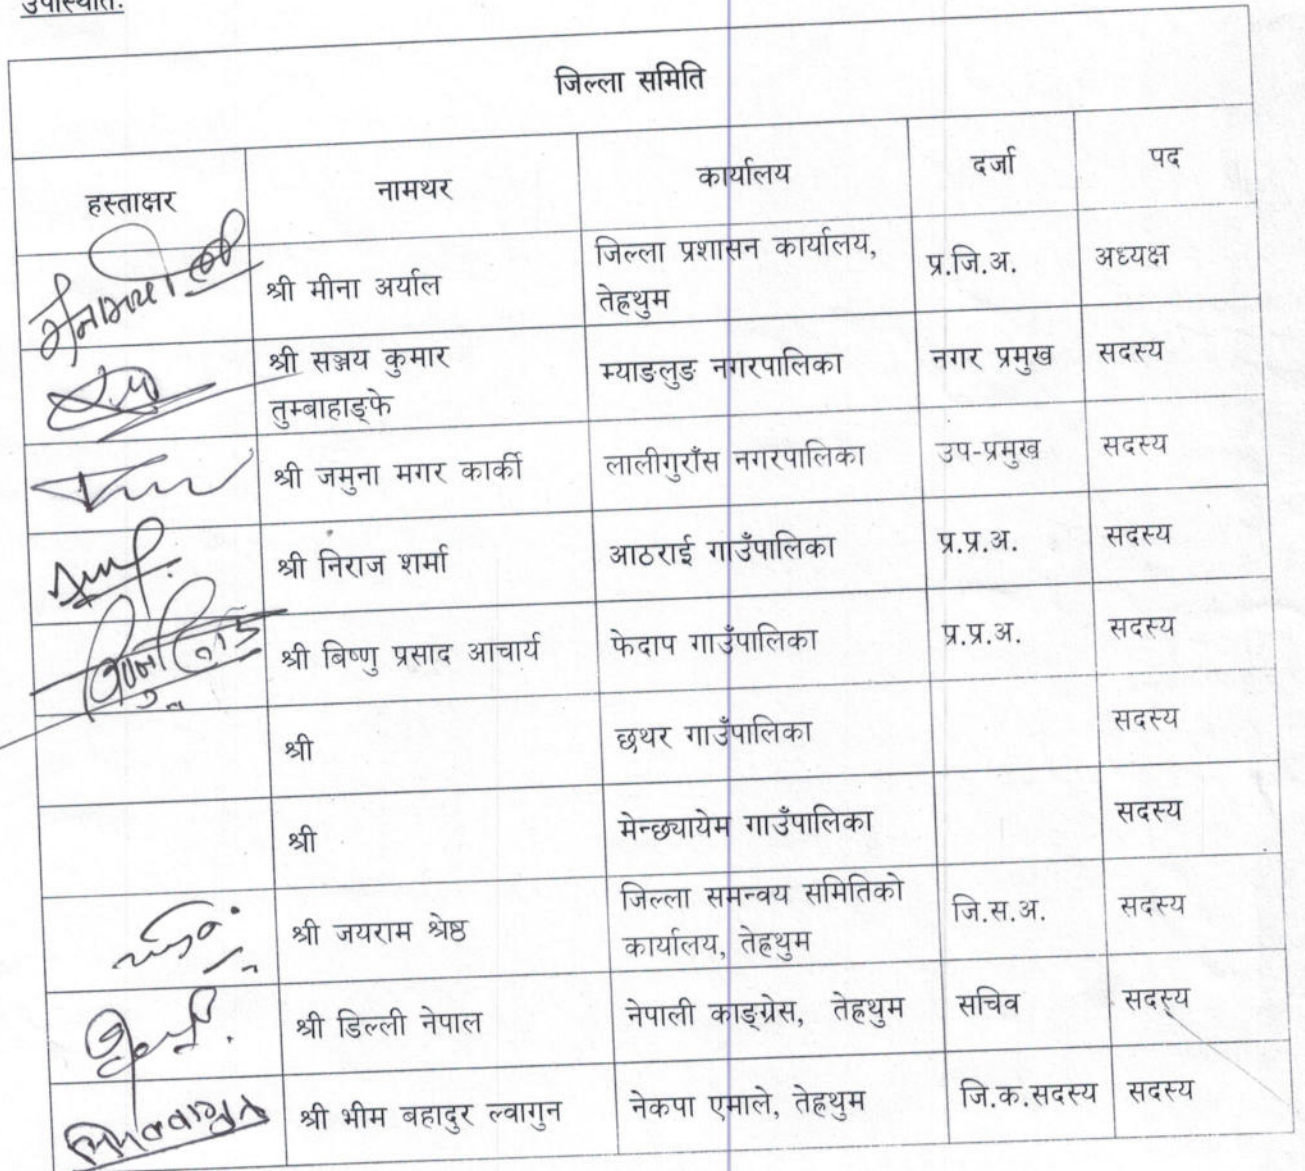 उपस्थितिः
जिल्ला समिति
हस्ताक्षर नामथर कार्यालय दर्जा पद
श्री मीना अर्याल जिल्ला प्रशासन कार्यालय, तेह्रथुम प्र.जि.अ. अध्यक्ष
श्री सञ्जय कुमार तुम्बाहाङ्फे म्याङलुङ नगरपालिका नगर प्रमुख सदस्य
श्री जमुना मगर कार्की लालीगुराँस नगरपालिका उप-प्रमुख सदस्य
श्री निराज शर्मा आठराई गाउँपालिका प्र.प्र.अ. सदस्य
श्री बिष्णु प्रसाद आचार्य फेदाप गाउँपालिका प्र.प्र.अ. सदस्य
श्री छथर गाउँपालिका सदस्य
श्री मेन्छ्यायेम गाउँपालिका सदस्य
श्री जयराम श्रेष्ठ जिल्ला समन्वय समितिको कार्यालय, तेह्रथुम जि.स.अ. सदस्य
श्री डिल्ली नेपाल नेपाली काङ्ग्रेस, तेह्रथुम सचिव सदस्य
श्री भीम बहादुर ल्वागुन नेकपा एमाले, तेह्रथुम जि.क.सदस्य सदस्य